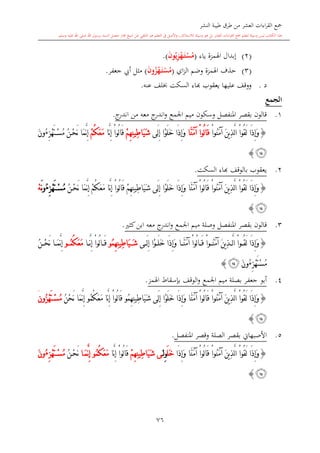 جمع القراءات العشر من طرق طيبة النشر
(٢) إبدال الهمزة ياء (مُسْتَهْزِيُونَ).
(٣) حذف الهمزة وضم الزاي (مُسْتَهْزُونَ) مثل أبي جعفر.
د . ووقف عليها يعقوب بهاء السكت بخلف عنه.
الجمع
١. قالون بقصر المنفصل وسكون ميم الجمع واندرج معه من اندرج.
﴿ وَإِذَا لَقُوا۟ ٱلَّذِينَ ءَامَنُوا۟ قَالُوٓا۟ ءَامَنَّا وَإِذَا خَلَوْا۟ إِلَىٰ شَيَـٰطِينِهِمْ قَالُوٓا۟ إِنَّا مَعَكُمْ إِنَّمَا نَحْنُ مُسْتَهْزِءُونَ
﴿١٤﴾ ﴾
٢. يعقوب بالوقف بهاء السكت.
﴿ وَإِذَا لَقُوا۟ ٱلَّذِينَ ءَامَنُوا۟ قَالُوٓا۟ ءَامَنَّا وَإِذَا خَلَوْا۟ إِلَىٰ شَيَـٰطِينِهِمْ قَالُوٓا۟ إِنَّا مَعَكُمْ إِنَّمَا نَحْنُ مُسْتَهْزِءُونَهْ
﴿١٤﴾ ﴾
٣. قالون بقصر المنفصل وصلة ميم الجمع واندرج معه ابن كثير.
﴿ وَإِذَا لَقُوا۟ ٱلَّذِينَ ءَامَنُوا۟ قَالُوٓا۟ ءَامَنَّا وَإِذَا خَلَوْا۟ إِلَىٰ شَيَـٰطِينِهِمُو قَالُوٓا۟ إِنَّا مَعَكُمُو إِنَّمَا نَحْنُ
مُسْتَهْزِءُونَ ﴿١٤﴾ ﴾
٤. أبو جعفر بصلة ميم الجمع والوقف بإسقاط الهمز.
﴿ وَإِذَا لَقُوا۟ ٱلَّذِينَ ءَامَنُوا۟ قَالُوٓا۟ ءَامَنَّا وَإِذَا خَلَوْا۟ إِلَىٰ شَيَـٰطِينِهِمُو قَالُوٓا۟ إِنَّا مَعَكُمُو إِنَّمَا نَحْنُ مُسْتَهْزُونَ
﴿١٤﴾ ﴾
٥. الأصبهاني بقصر الصلة وقصر المنفصل.
﴿ وَإِذَا لَقُوا۟ ٱلَّذِينَ ءَامَنُوا۟ قَالُوٓا۟ ءَامَنَّا وَإِذَا خَلَوِلَىٰ شَيَـٰطِينِهِمْ قَالُوٓا۟ إِنَّا مَعَكُمُو إِنَّمَا نَحْنُ مُسْتَهْزِءُونَ
﴿١٤﴾ ﴾
٧٦